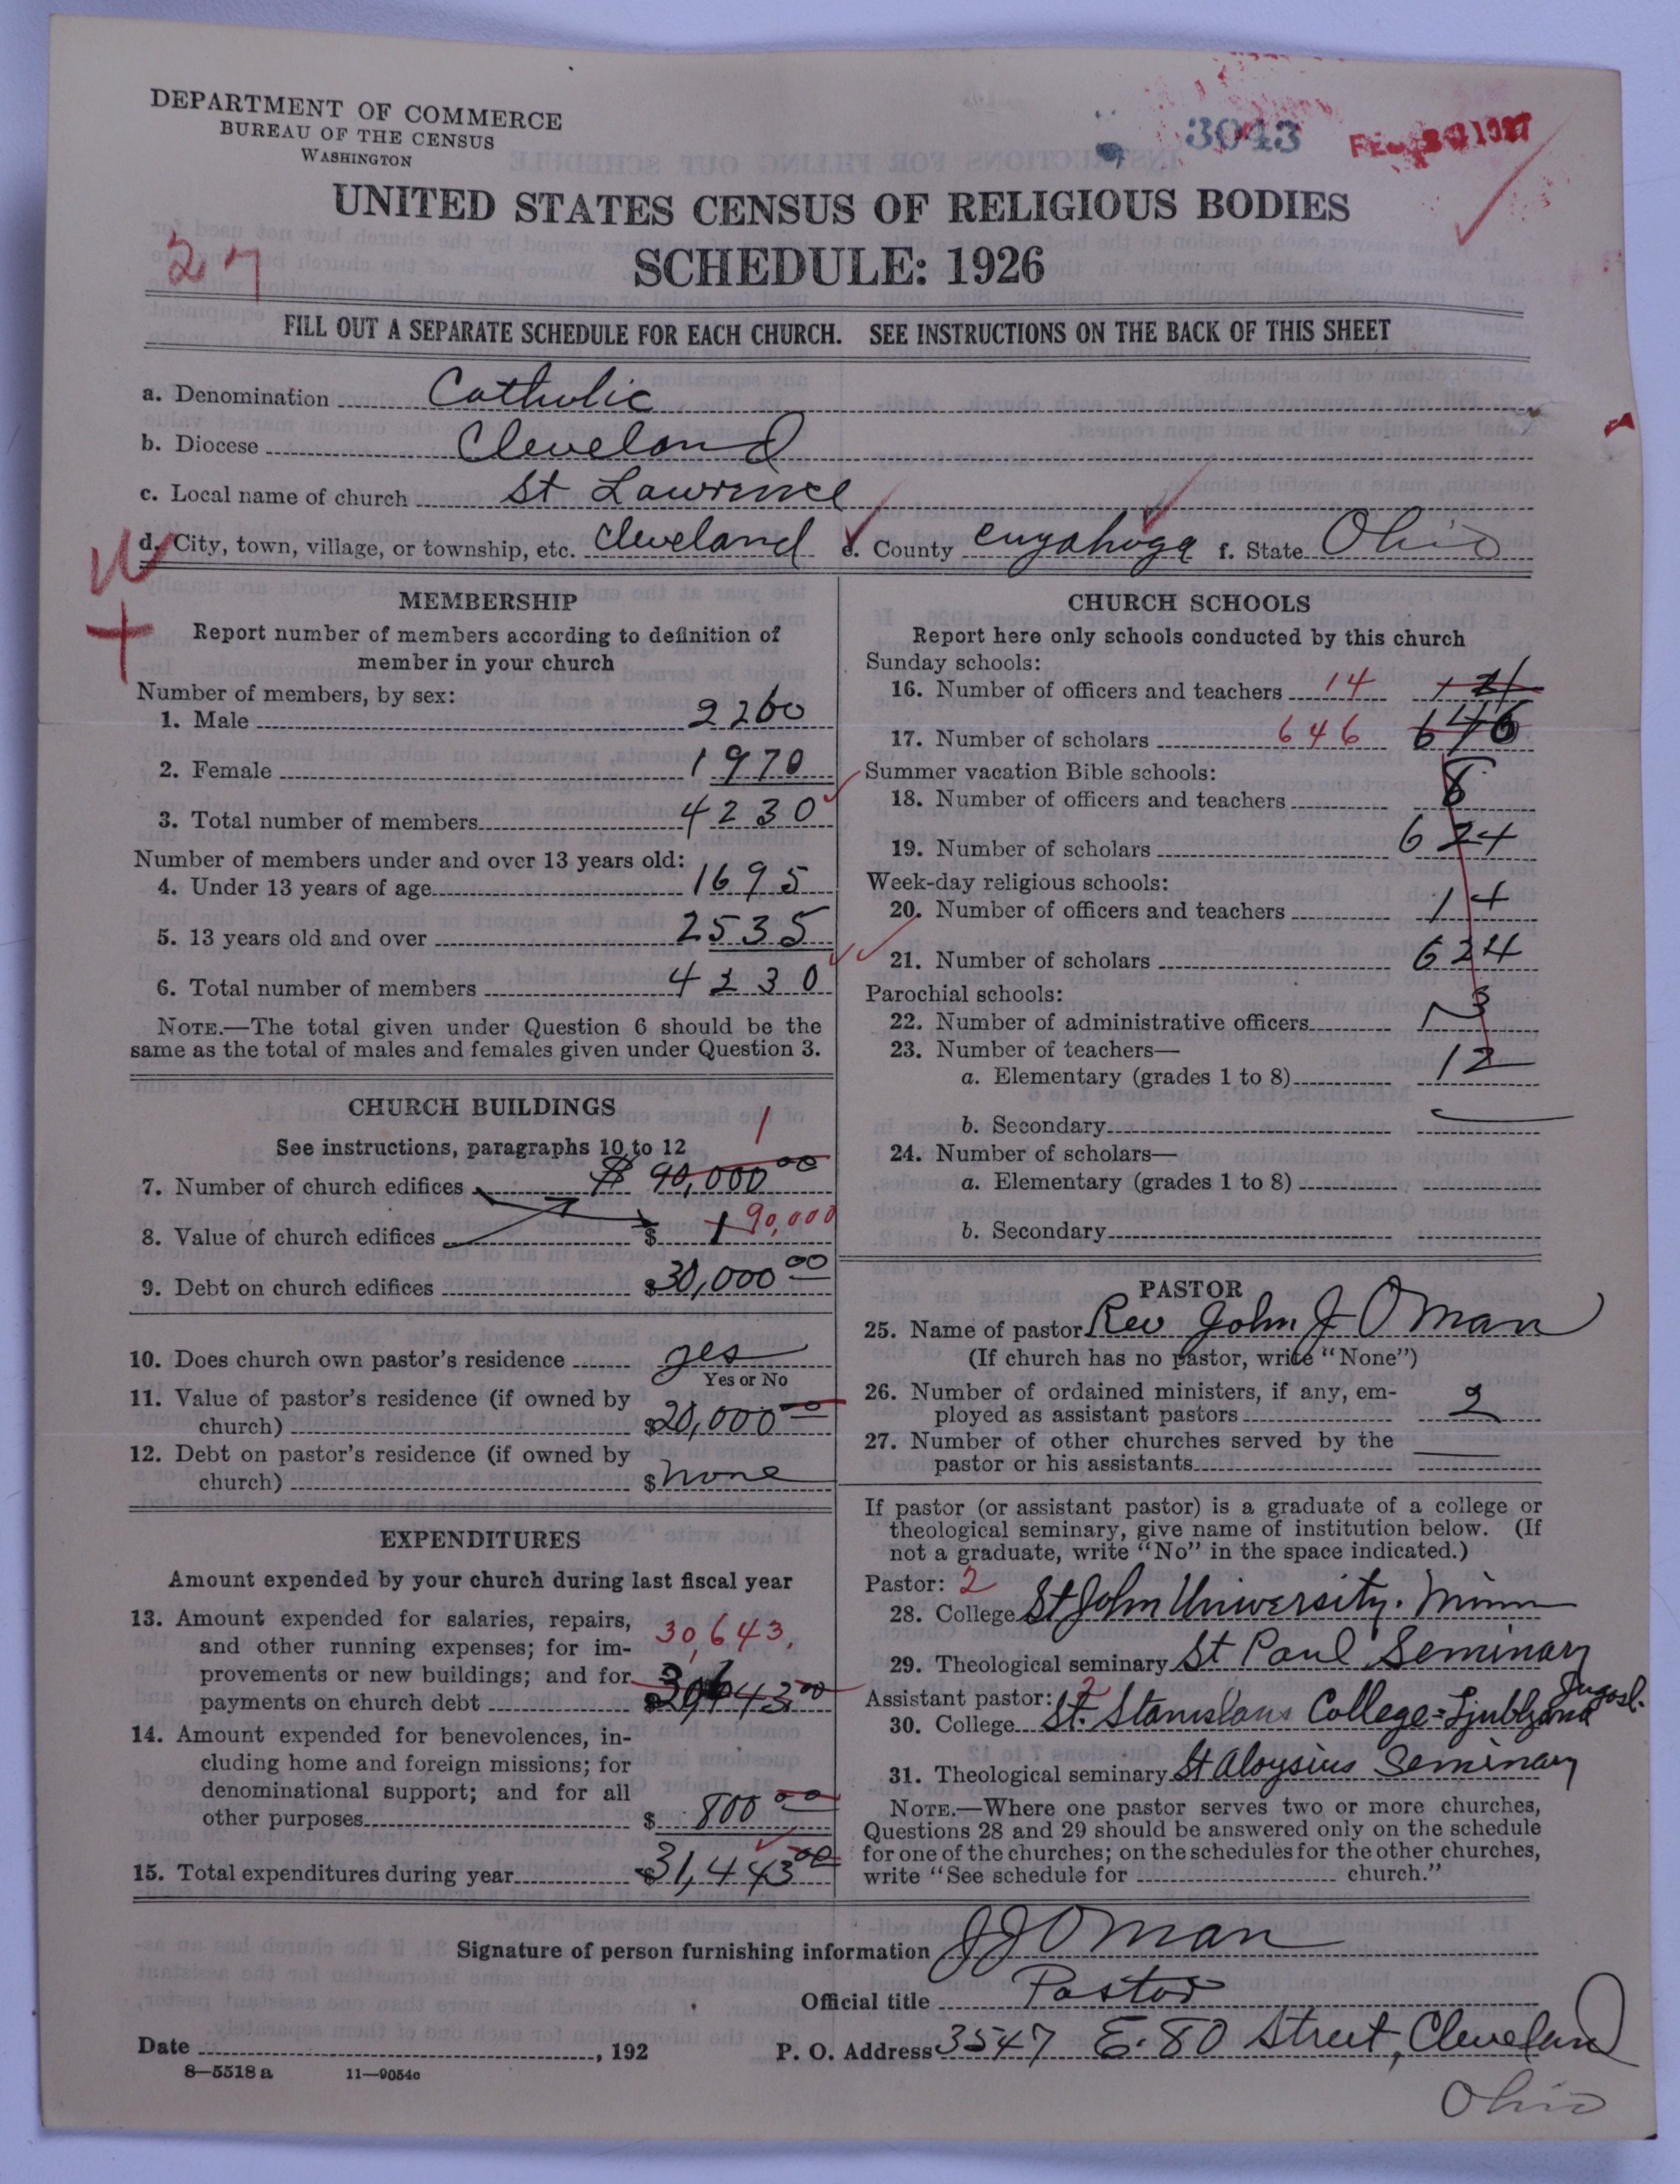 DEPARTMENT OF COMMERCE
BUREAU OF THE CENSUS
WASHINGTON
3043
1927
UNITED STATES CENSUS OF RELIGIOUS BODIES
27
SCHEDULE: 1926
FILL OUT A SEPARATE SCHEDULE FOR EACH CHURCH. SEE INSTRUCTIONS ON THE BACK OF THIS SHEET
a. Denomination Catholic
b. Diocese Cleveland
c. Local name of church St Lawrence
d. City, town, village, or township, etc. Cleveland e. County Cuyahoga f. State Ohio
MEMBERSHIP
Report number of members according to definition of
member in your church
Number of members, by sex:
1. Male 2260
2. Female 1970
3. Total number of members 4230
Number of members under and over 13 years old:
4. Under 13 years of age 1695
5. 13 years old and over 2535
6. Total number of members 4230
NOTE.—The total given under Question 6 should be the
same as the total of males and females given under Question 3.
CHURCH BUILDINGS
See instructions, paragraphs 10 to 12
1
7. Number of church edifices $ 90,000 00
8. Value of church edifices $ 1 90,000
9. Debt on church edifices $30,000 00
10. Does church own pastor's residence yes
Yes or No
11. Value of pastor's residence (if owned by
church) $20,000 00
12. Debt on pastor's residence (if owned by
church) $ none
EXPENDITURES
Amount expended by your church during last fiscal year
13. Amount expended for salaries, repairs,
and other running expenses; for im-
30,643.
provements or new buildings; and for
payments on church debt $ 30,643 00
14. Amount expended for benevolences, in-
cluding home and foreign missions; for
denominational support; and for all
other purposes $ 800 00
15. Total expenditures during year $31,443 00
CHURCH SCHOOLS
Report here only schools conducted by this church
Sunday schools:
16. Number of officers and teachers 14
17. Number of scholars 646 646
Summer vacation Bible schools:
18. Number of officers and teachers 8
19. Number of scholars 624
Week-day religious schools:
20. Number of officers and teachers 14
21. Number of scholars 624
Parochial schools:
22. Number of administrative officers 3
23. Number of teachers—
a. Elementary (grades 1 to 8) 12
b. Secondary
24. Number of scholars—
a. Elementary (grades 1 to 8)
b. Secondary
PASTOR
25. Name of pastor Rev John J Oman
(If church has no pastor, write "None")
26. Number of ordained ministers, if any, em-
ployed as assistant pastors 2
27. Number of other churches served by the
pastor or his assistants
If pastor (or assistant pastor) is a graduate of a college or
theological seminary, give name of institution below. (If
not a graduate, write "No" in the space indicated.)
Pastor: 2
28. College St John University. Minn
29. Theological seminary St Paul Seminary
Assistant pastor: 2
30. College St. Stanislaus College = Ljubljana Jugosl.
31. Theological seminary St Aloysius Seminary
NOTE.—Where one pastor serves two or more churches,
Questions 28 and 29 should be answered only on the schedule
for one of the churches; on the schedules for the other churches,
write "See schedule for church."
Signature of person furnishing information J J Oman
Official title Pastor
Date , 192
P. O. Address 3547 E. 80 Street, Cleveland
Ohio
8—5518 a 11—9054c